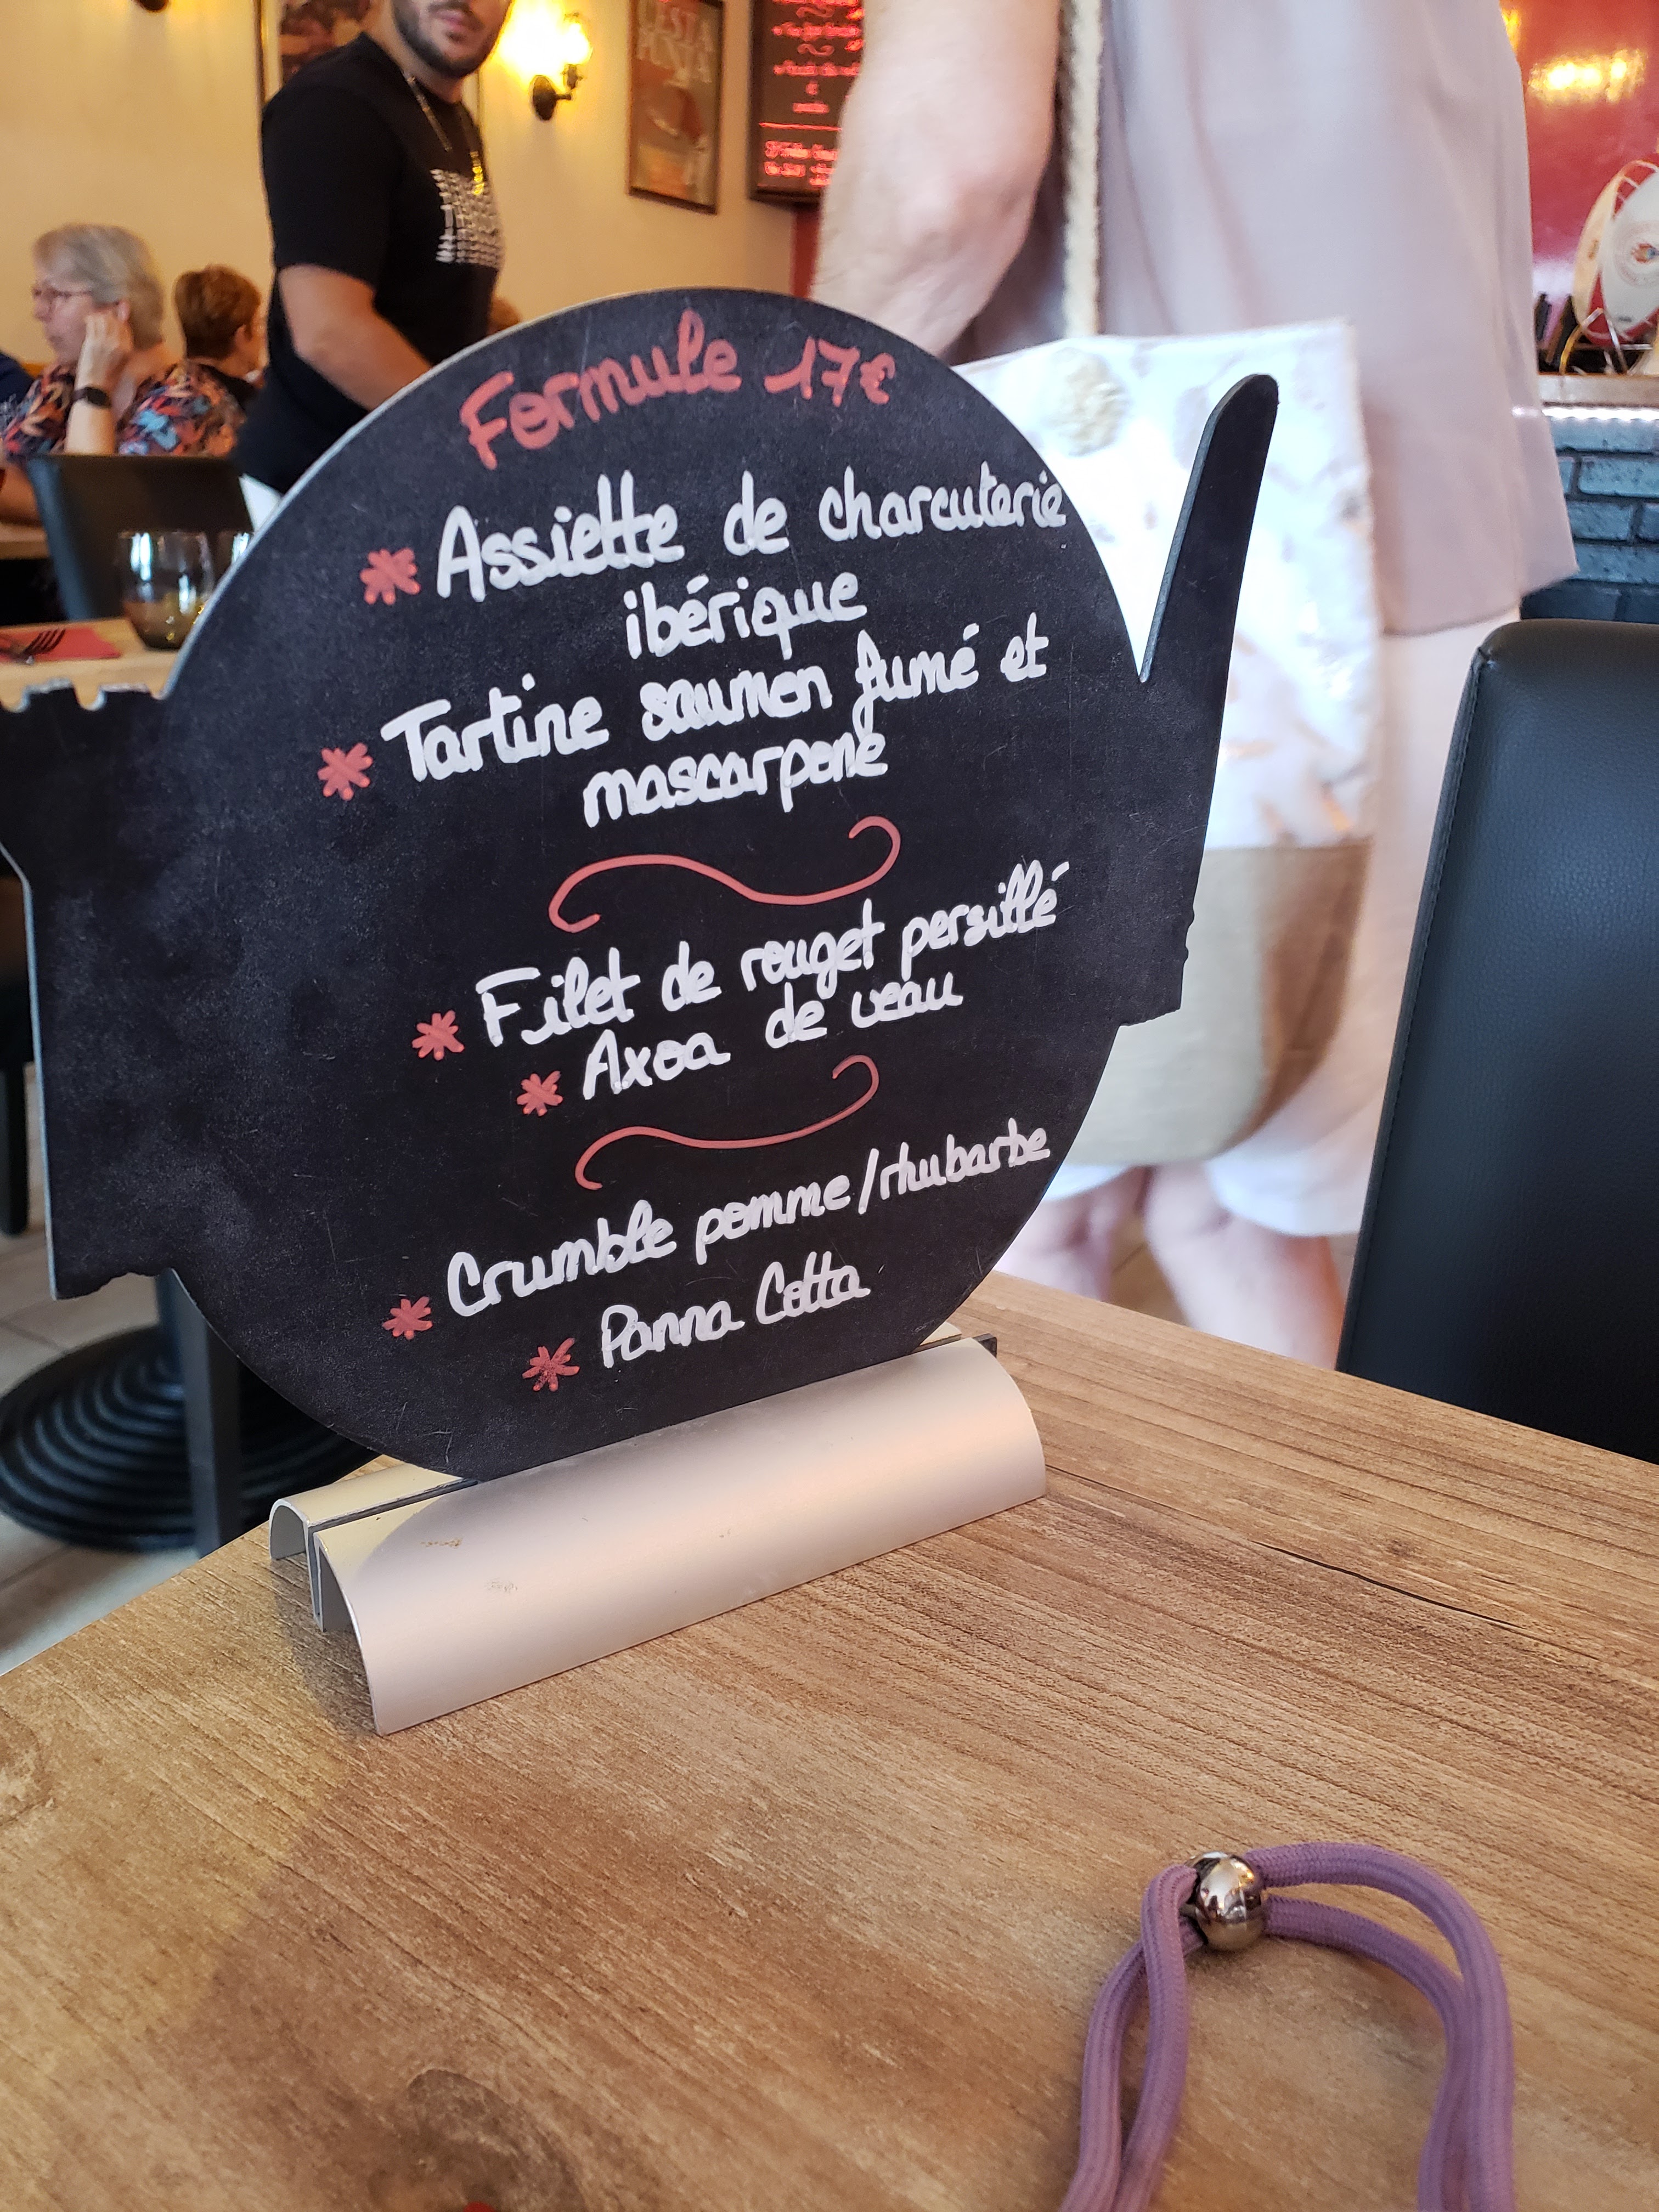 Formule 17€
* Assiette de charcuterie
ibérique
* Tartine saumon fumé et
mascarpone
* Filet de rouget persillé
* Axoa de veau
* Crumble pomme/rhubarbe
* Panna Cotta